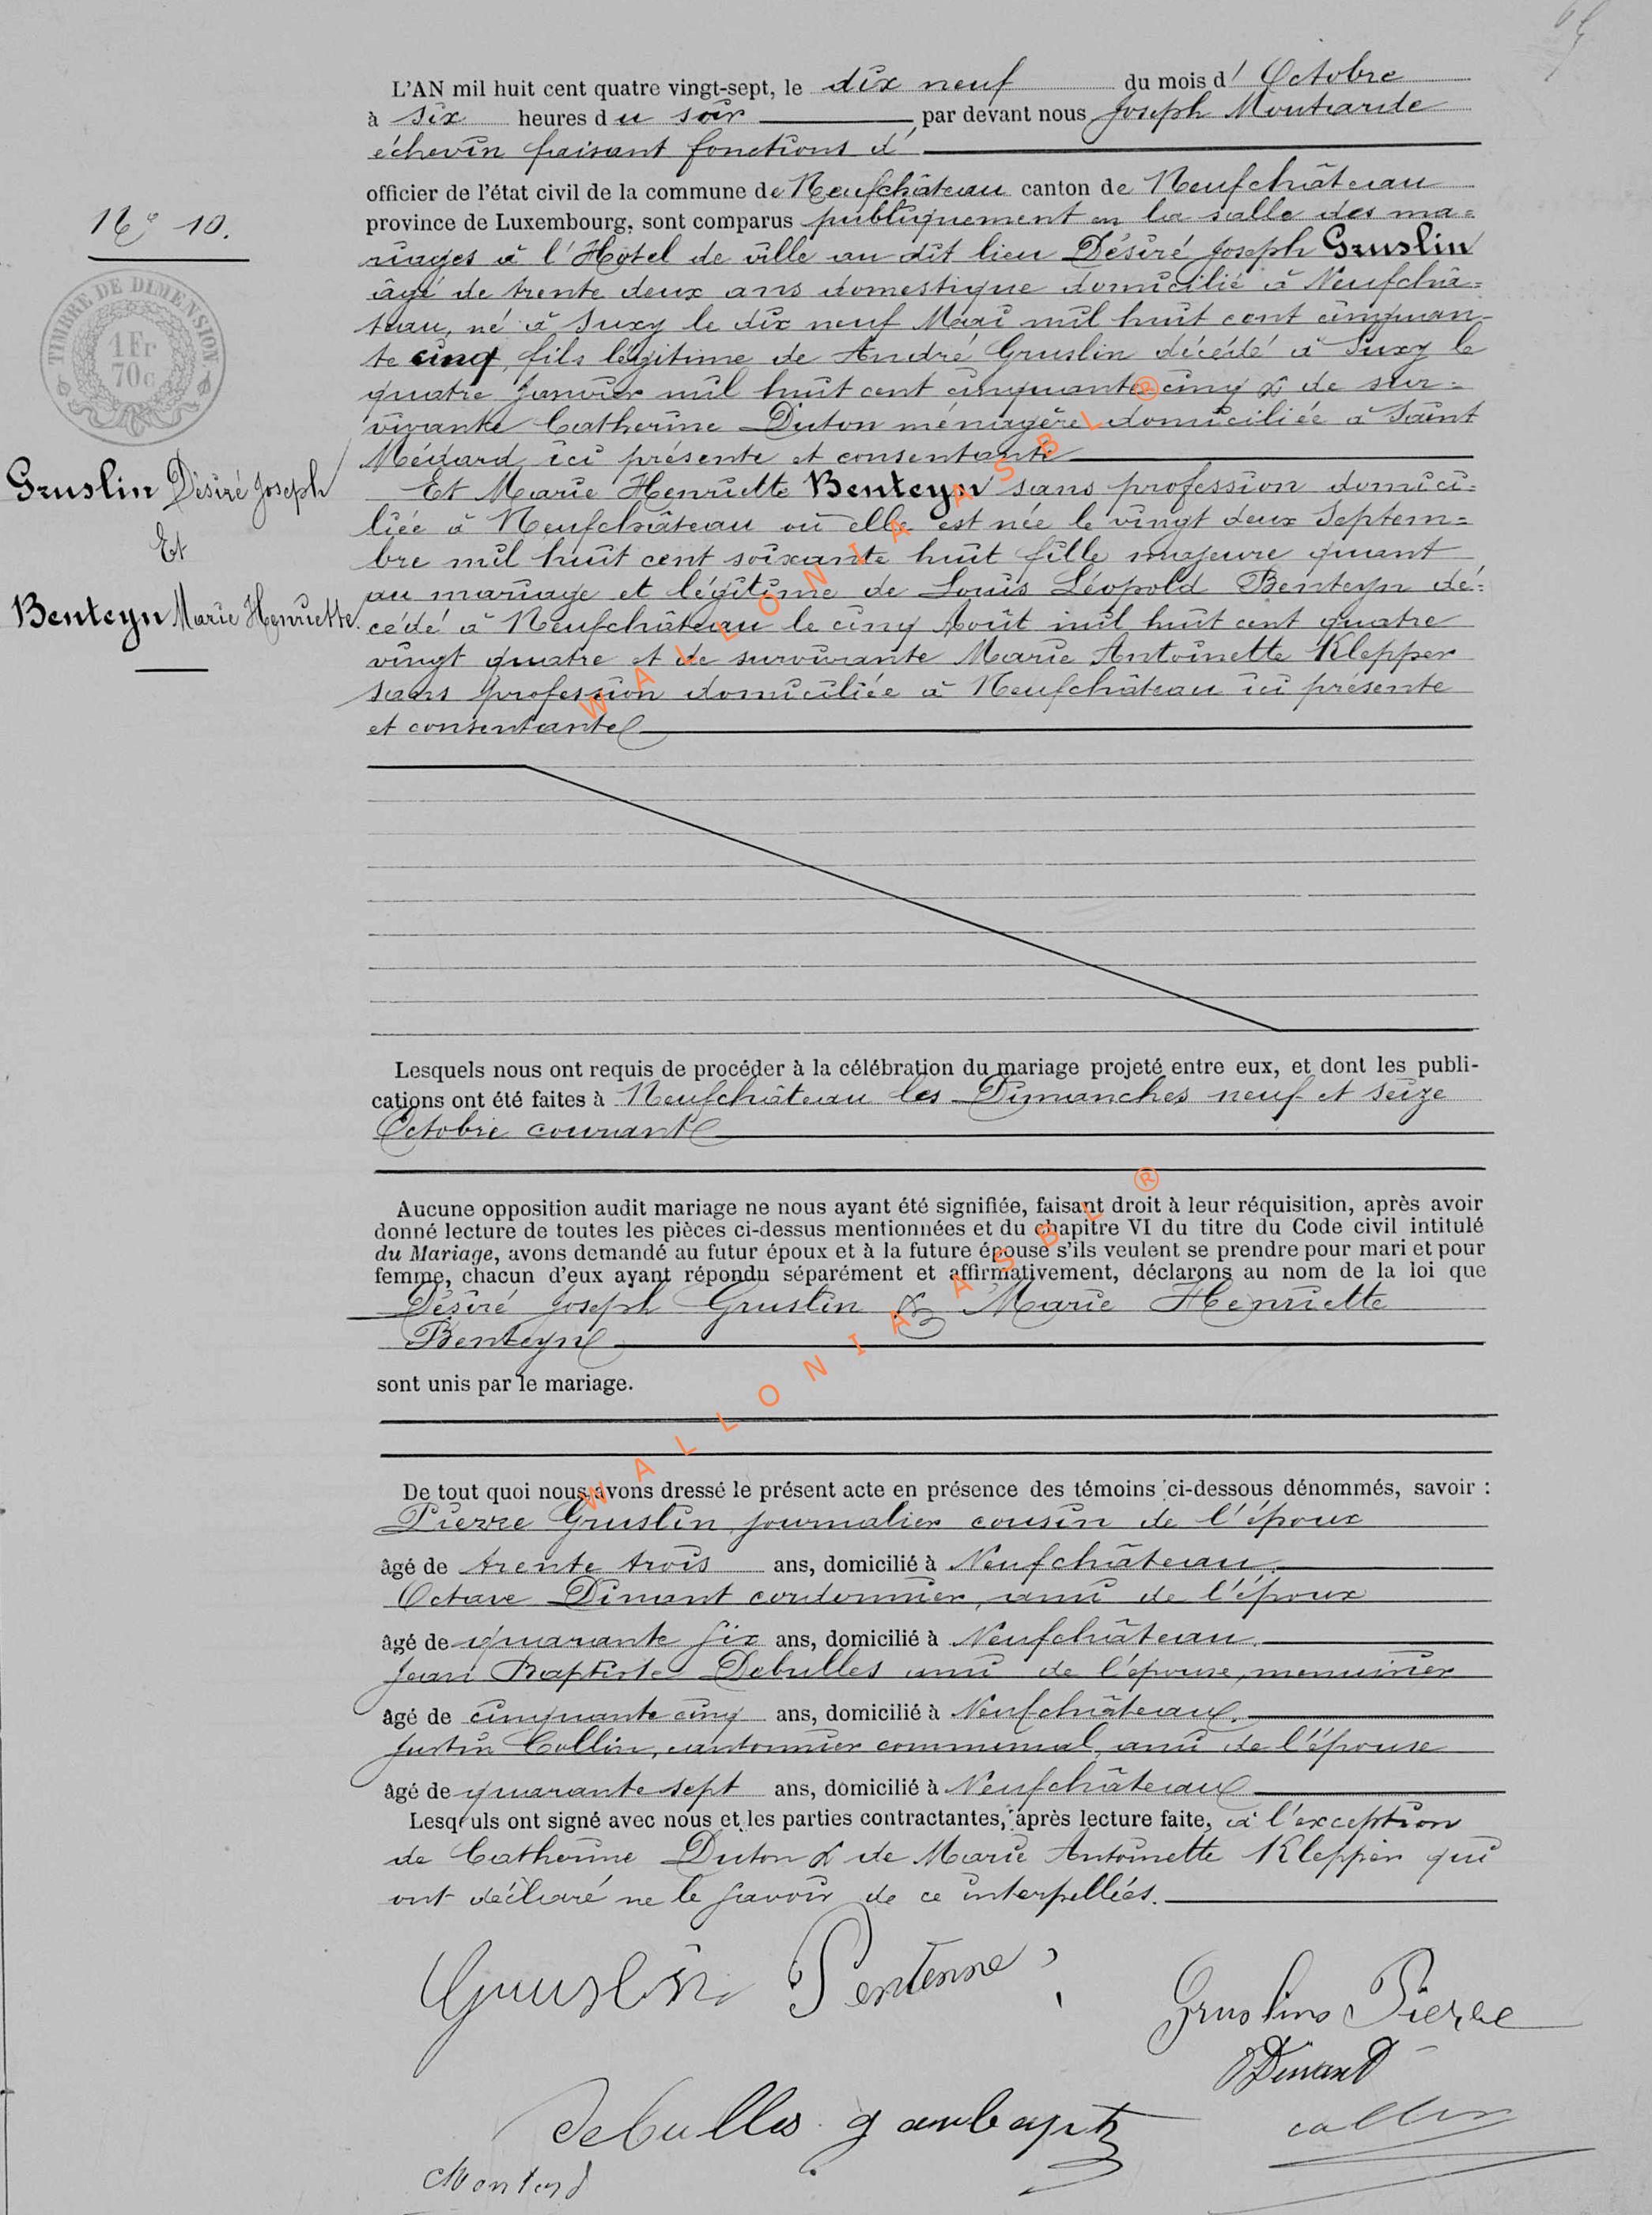 L'AN mil huit cent quatre vingt-sept, le dix neuf du mois d' Octobre
à six heures du soir par devant nous Joseph
échevin faisant fonctions d'
officier de l'état civil de la commune de Neufchâteau canton de Neufchâteau
province de Luxembourg, sont comparus publiquement en la salle des ma=
N° 10.
riages à l'Hôtel de ville au dit lieu Désiré Joseph Gruslin
âgé de trente deux ans domestique domicilié à Neufchâ=
teau, né à Suxy le dix neuf Mai mil huit cent cinquan-
TIMBRE DE DIMENSION
1 Fr
70c
te cinq, fils légitime de André Gruslin décédé à Suxy le
quatre Janvier mil huit cent cinquante cinq & de sur=
vivante Catherine Duton ménagère domiciliée à Saint
Médard ici présente et consentante
Gruslin Désiré Joseph
Et
Benteyn Marie Henriette.
Et Marie Henriette Benteyn sans profession domici=
liée à Neufchâteau où elle est née le vingt deux Septem=
bre mil huit cent soixante huit fille majeure quant
au mariage et légitime de Louis Léopold Benteyn dé=
cédé à Neufchâteau le cinq Août mil huit cent quatre
vingt quatre et de survivante Marie Antoinette Klepper
sans profession domiciliée à Neufchâteau ici présente
et consentante
Lesquels nous ont requis de procéder à la célébration du mariage projeté entre eux, et dont les publi-
cations ont été faites à Neufchâteau les Dimanches neuf et seize
Octobre courant
Aucune opposition audit mariage ne nous ayant été signifiée, faisant droit à leur réquisition, après avoir
donné lecture de toutes les pièces ci-dessus mentionnées et du chapitre VI du titre du Code civil intitulé
du Mariage, avons demandé au futur époux et à la future épouse s'ils veulent se prendre pour mari et pour
femme, chacun d'eux ayant répondu séparément et affirmativement, déclarons au nom de la loi que
Désiré Joseph Gruslin & Marie Henriette
Benteyn
sont unis par le mariage.
De tout quoi nous avons dressé le présent acte en présence des témoins ci-dessous dénommés, savoir :
Pierre Gruslin journalier cousin de l'époux
âgé de trente trois ans, domicilié à Neufchâteau.
Octave Dinant cordonnier, ami de l'époux
âgé de quarante six ans, domicilié à Neufchâteau.
Jean Baptiste Debulles ami de l'épouse, menuisier
âgé de cinquante cinq ans, domicilié à Neufchâteau.
Justin Collin, cantonnier communal, ami de l'épouse
âgé de quarante sept ans, domicilié à Neufchâteau
Lesquels ont signé avec nous et les parties contractantes, après lecture faite, à l'exception
de Catherine Duton & de Marie Antoinette Klepper qui
ont déclaré ne le savoir de ce interpellées.
Gruuslin
Gruslin Pierre
Dinant
debulles
collin
WALLONIA ASBL ®
WALLONIA ASBL ®